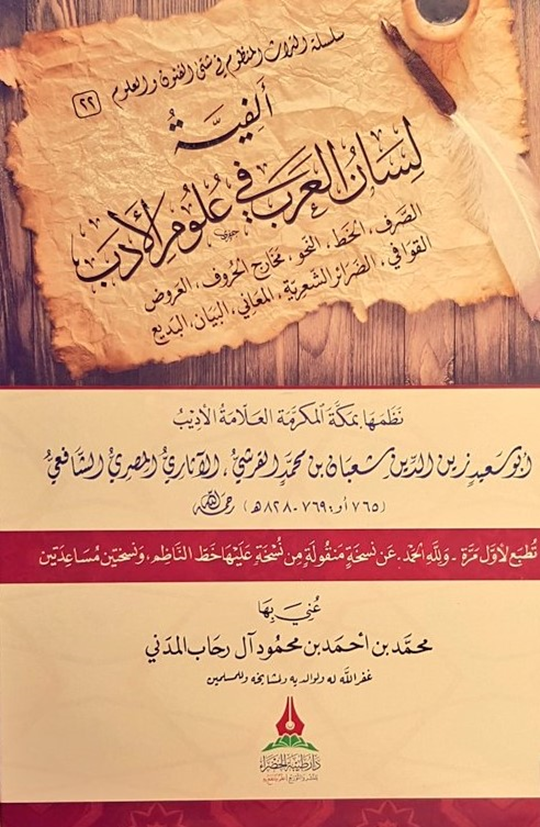 سلسلة التراث المنظوم في شتى الفنون والعلوم
٢٢
ألفية
لسان العرب في علوم الأدب
الصرف، الخط، النحو، مخارج الحروف، العروض
القوافي، الضرائر الشعرية، المعاني، البيان، البديع
نظمها بمكة المكرمة العلامة الأديب
أبو سعيد زين الدين شعبان بن محمد القرشي، الآثاري المصري الشافعي
(٧٦٥ أو: ٧٦٩-٨٢٨هـ) رحمه الله
تطبع لأول مرة - ولله الحمد - عن نسخة منقولة من نسخة عليها خط الناظم، ونسختين مساعدتين
عني بها
محمد بن أحمد بن محمود آل رحاب المدني
غفر الله له ولوالديه ولمشايخه وللمسلمين
دار طيبة الخضراء
للنشر والتوزيع